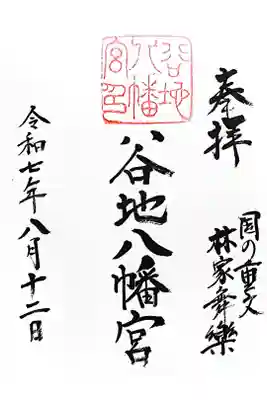 奉拝
国の重文
林家舞楽
谷地
八幡
宮印
谷地八幡宮
令和七年八月十二日